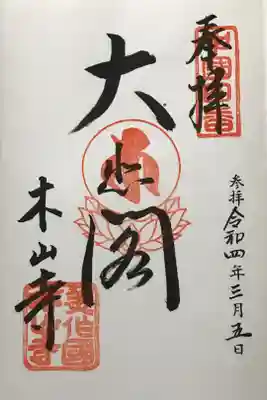 奉拝
参拝 令和四年三月五日
大悲閣
木山寺